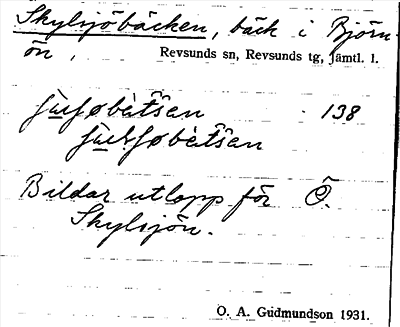 Skylsjöbäcken, bäck i Björn-
ön, Revsunds sn, Revsunds tg, Jämtl. l.
138
Bildar utlopp för Ö.
Skylsjön.
O. A. Gudmundson 1931.